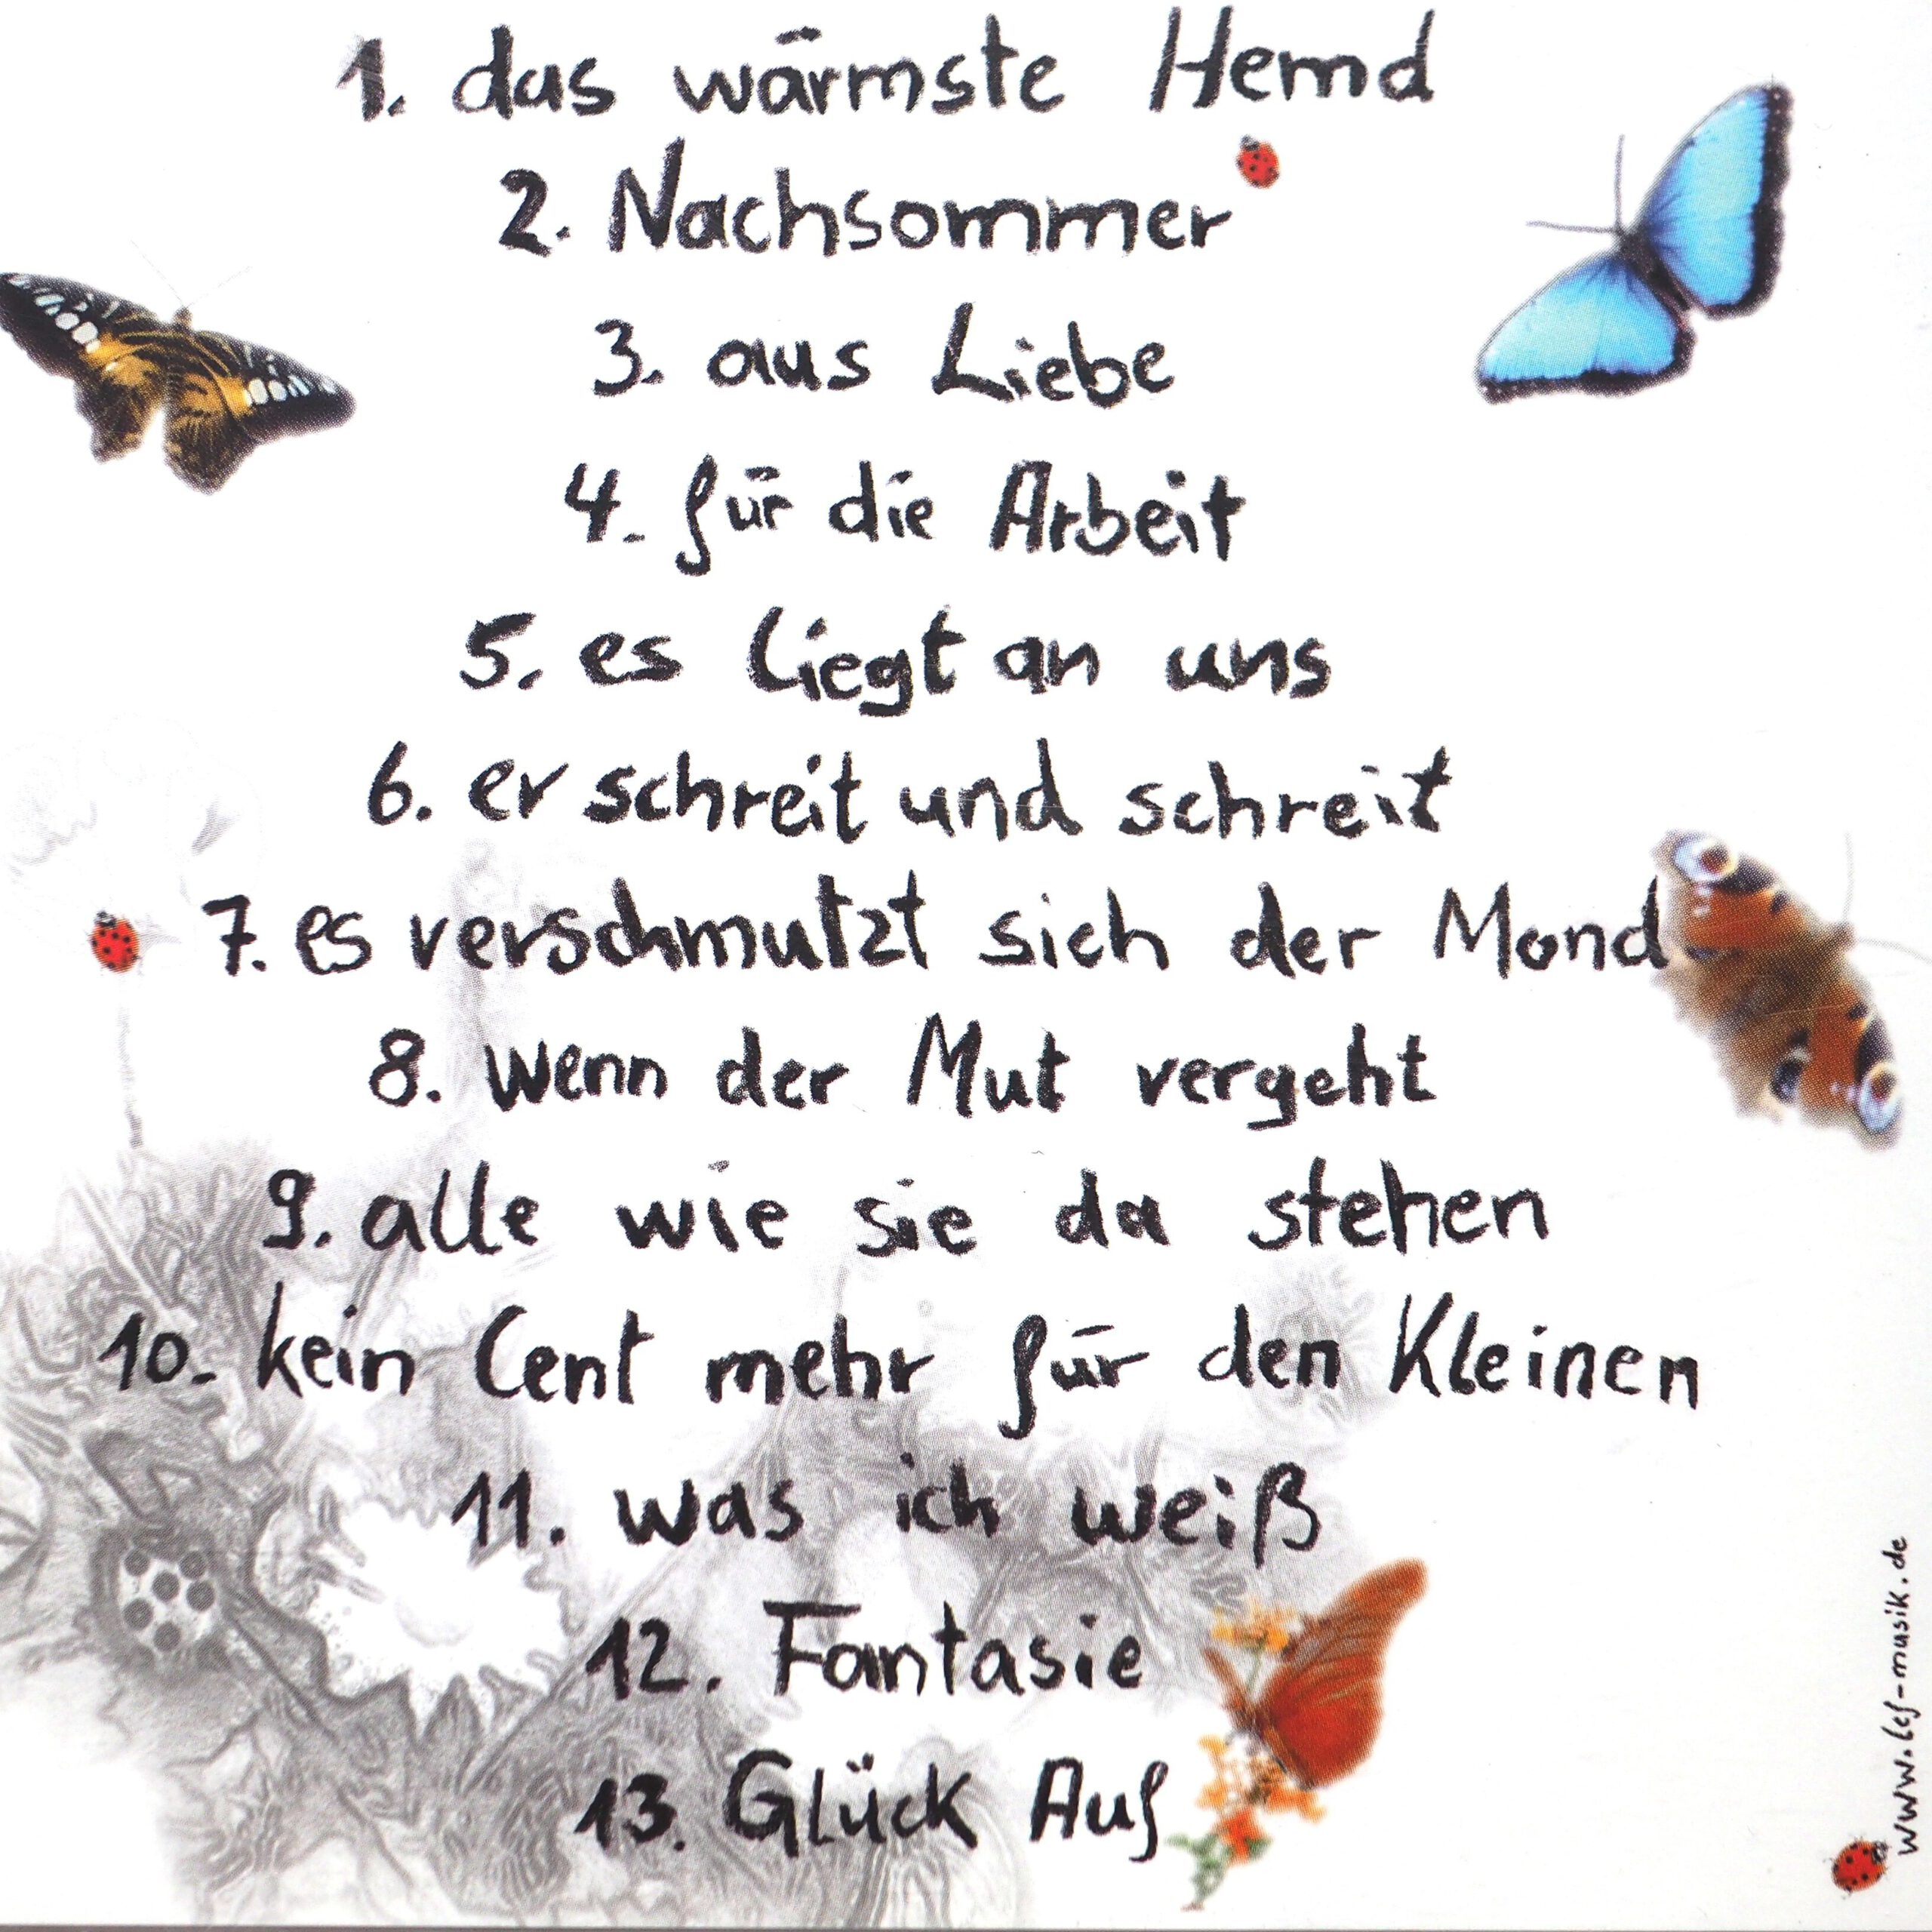 1. das wärmste Hemd
2. Nachsommer
3. aus Liebe
4. für die Arbeit
5. es liegt an uns
6. er schreit und schreit
7. es verschmutzt sich der Mond
8. wenn der Mut vergeht
9. alle wie sie da stehen
10. kein Cent mehr für den Kleinen
11. was ich weiß
12. Fantasie
13. Glück Auf
www.lef-musik.de